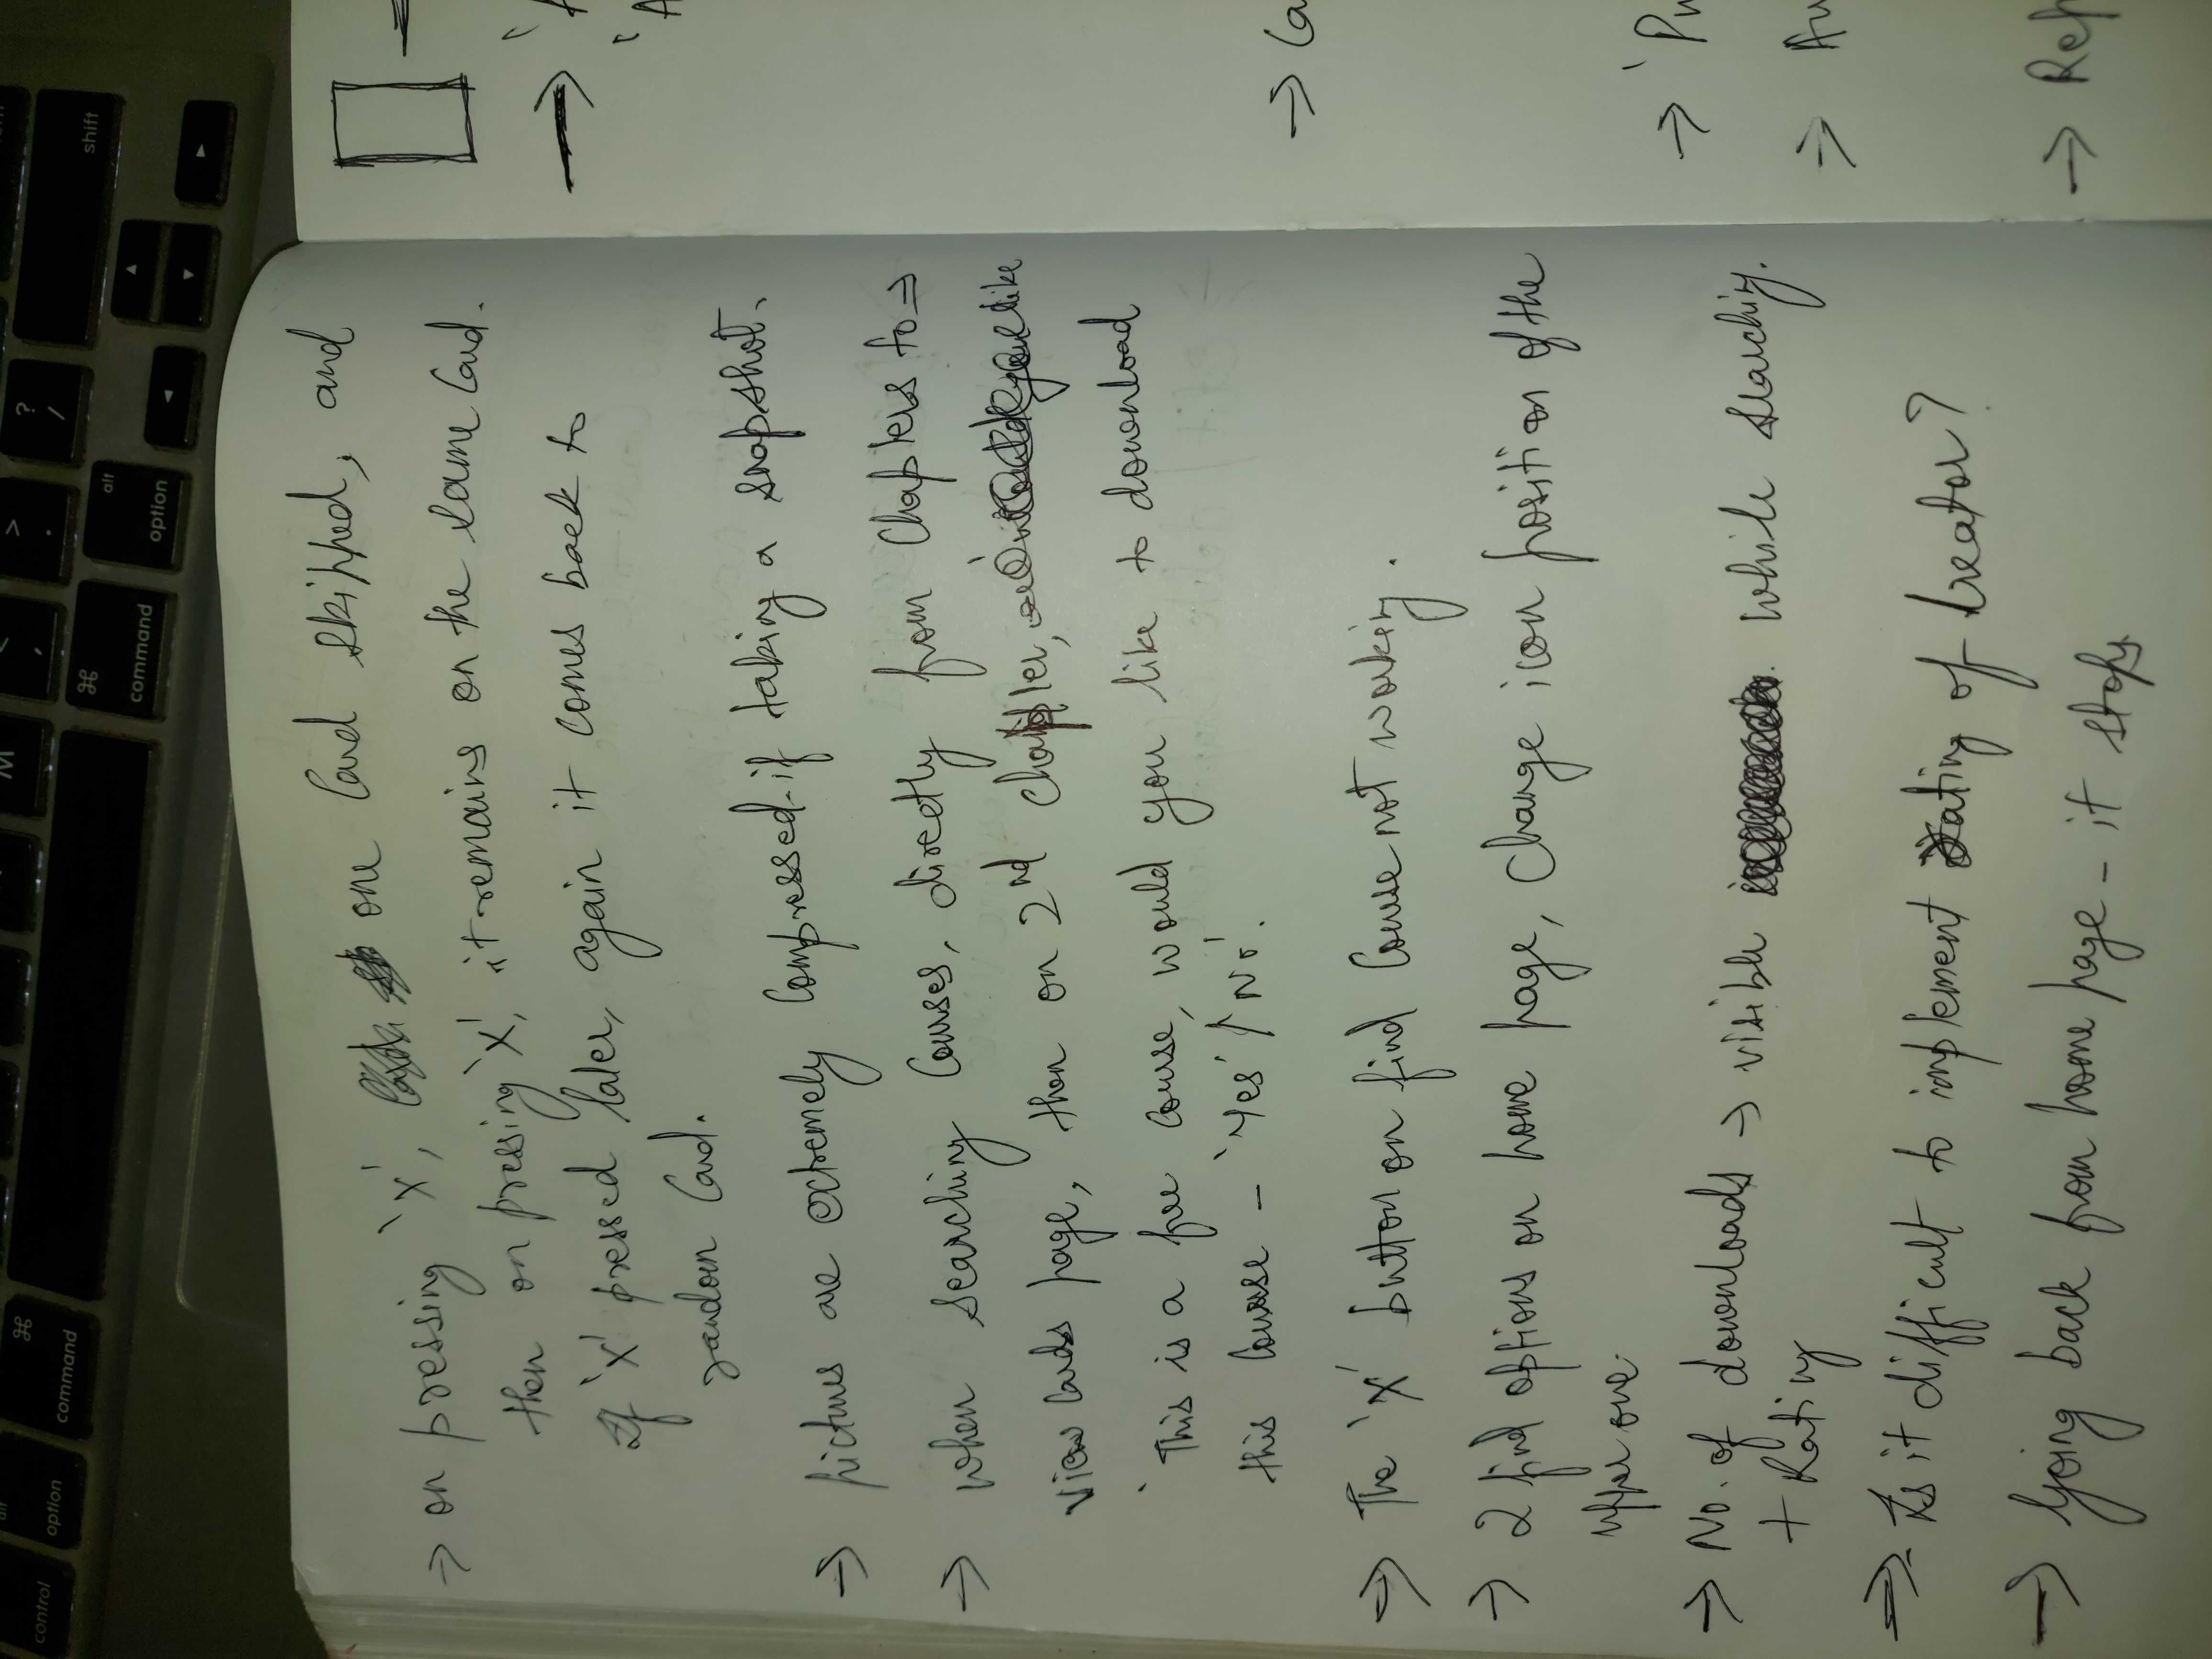 control
alt
option
⌘
command
M
<
,
>
.
?
/
⌘
command
alt
option
shift
→ on pressing 'X', one Card skipped, and
then on pressing 'X', it remains on the same Card.
If 'X' pressed later, again it comes back to
random Card.
→ pictures are extremely Compressed if taking a snapshot.
→ when searching Courses, directly from Chapters to →
View Cards page, then on 2nd Chapter, like
'This is a free Course, would you like to download
this Course - 'Yes' / 'No'.
→ The 'X' button on find Course not working.
→ 2 find options on home page, Change icon position of the
upper one.
→ No. of downloads → visible while searching.
+ Rating
→ Is it difficult to implement rating of Creator?
→ Going back from home page - it stops
→
→ Ca
→ 'Pu
→ Au
→ Rep